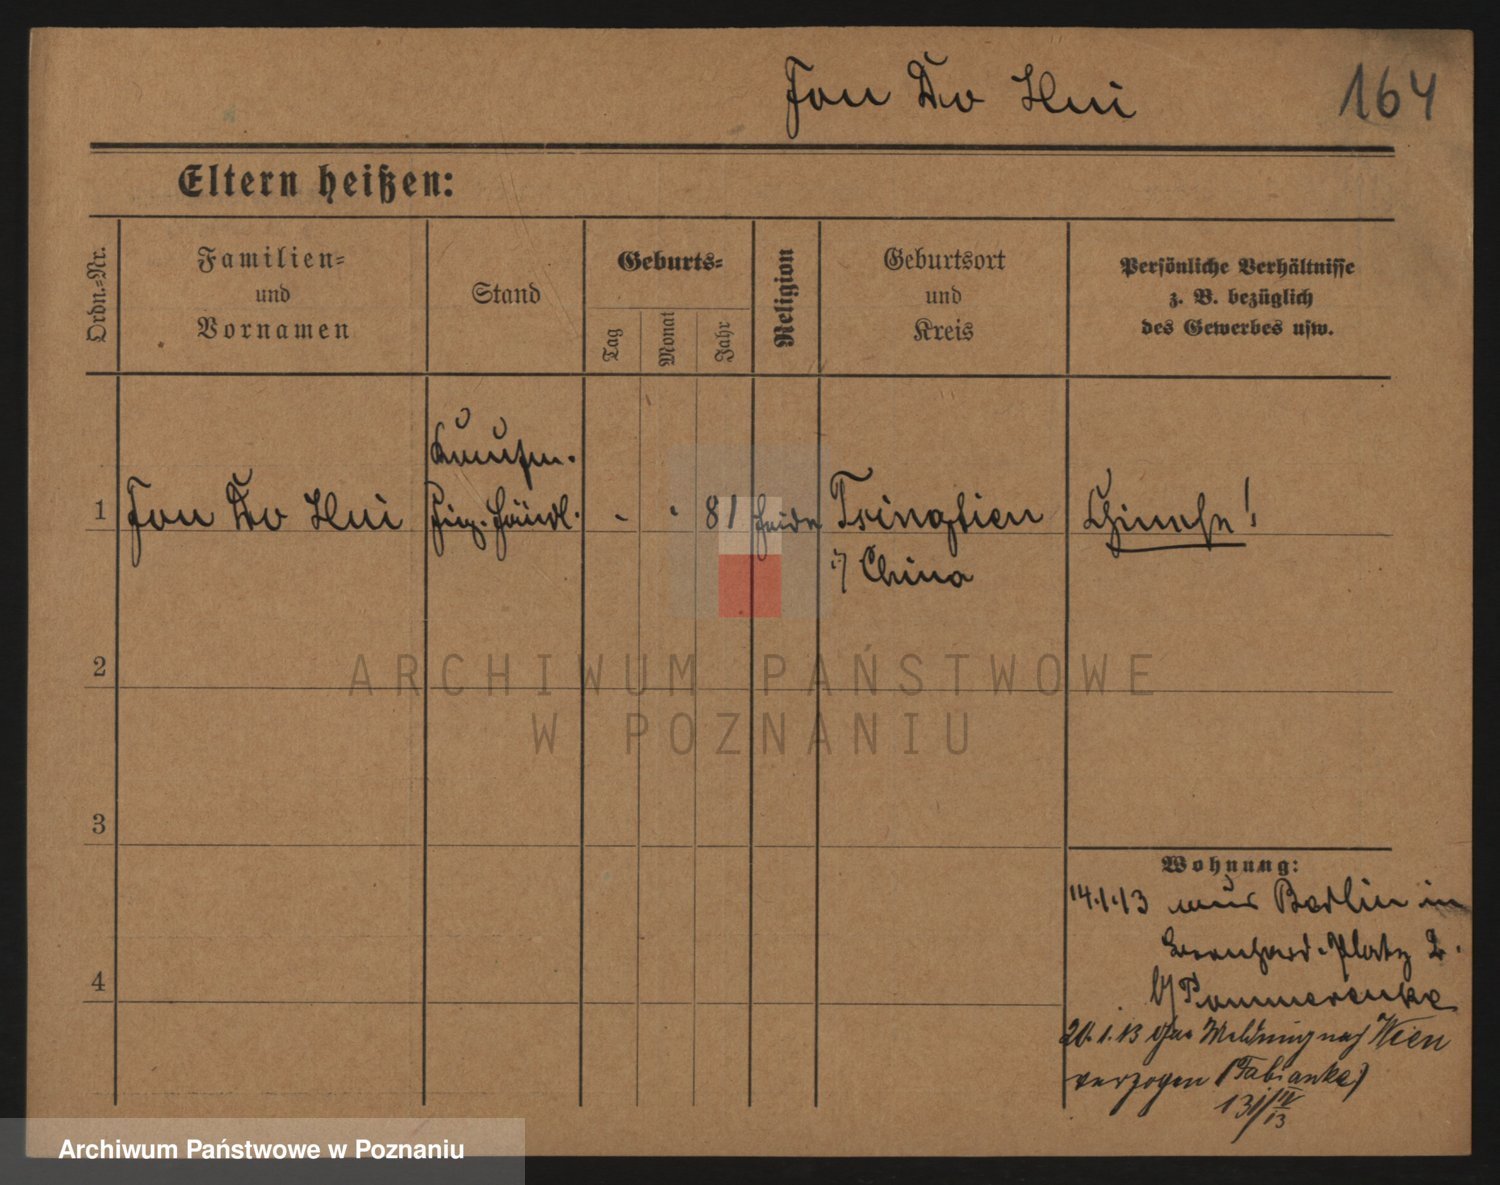 Fou Do Hui
164
Eltern heißen:
Ordn.-Nr.
Familien-
und
Vornamen
Stand
Geburts-
Tag
Monat
Jahr
Religion
Geburtsort
und
Kreis
Persönliche Verhältnisse
z. B. bezüglich
des Gewerbes usw.
1
Fou Do Hui
Kaufm.
händl.
81
Heide
Tsingtien
i/ China
Chinese!
2
3
4
Wohnung:
14.1.13 aus Berlin in
Bernhard-Platz 2.
b/ Pommerenke
20.1.13 ohne Meldung nach Wien
verzogen (Fabianke)
13/IV
13
ARCHIWUM PAŃSTWOWE
W POZNANIU
Archiwum Państwowe w Poznaniu